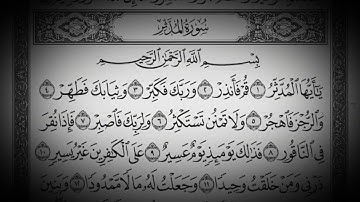 سُورَةُ المُدَّثِّرِ
بِسْمِ ٱللَّهِ ٱلرَّحْمَٰنِ ٱلرَّحِيمِ
يَٰٓأَيُّهَا ٱلْمُدَّثِّرُ ١ قُمْ فَأَنذِرْ ٢ وَرَبَّكَ فَكَبِّرْ ٣ وَثِيَابَكَ فَطَهِّرْ ٤
وَٱلرُّجْزَ فَٱهْجُرْ ٥ وَلَا تَمْنُن تَسْتَكْثِرُ ٦ وَلِرَبِّكَ فَٱصْبِرْ ٧ فَإِذَا نُقِرَ
فِى ٱلنَّاقُورِ ٨ فَذَٰلِكَ يَوْمَئِذٍ يَوْمٌ عَسِيرٌ ٩ عَلَى ٱلْكَٰفِرِينَ غَيْرُ يَسِيرٍ ١٠
ذَرْنِى وَمَنْ خَلَقْتُ وَحِيدًا ١١ وَجَعَلْتُ لَهُۥ مَالًا مَّمْدُودًا ١٢ وَبَنِينَ